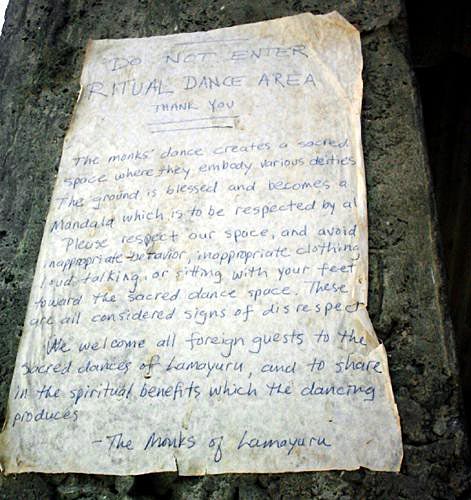 DO NOT ENTER
RITUAL DANCE AREA
THANK YOU
The monks' dance creates a sacred
space where they embody various deities
The ground is blessed and becomes a
Mandala which is to be respected by al
Please respect our space, and avoid
inappropriate behavior, inappropriate clothing
loud talking, or sitting with your feet
toward the sacred dance space. These
are all considered signs of disrespect
We welcome all foreign guests to the
sacred dances of Lamayuru, and to share
in the spiritual benefits which the dancing
produces
- The Monks of Lamayuru